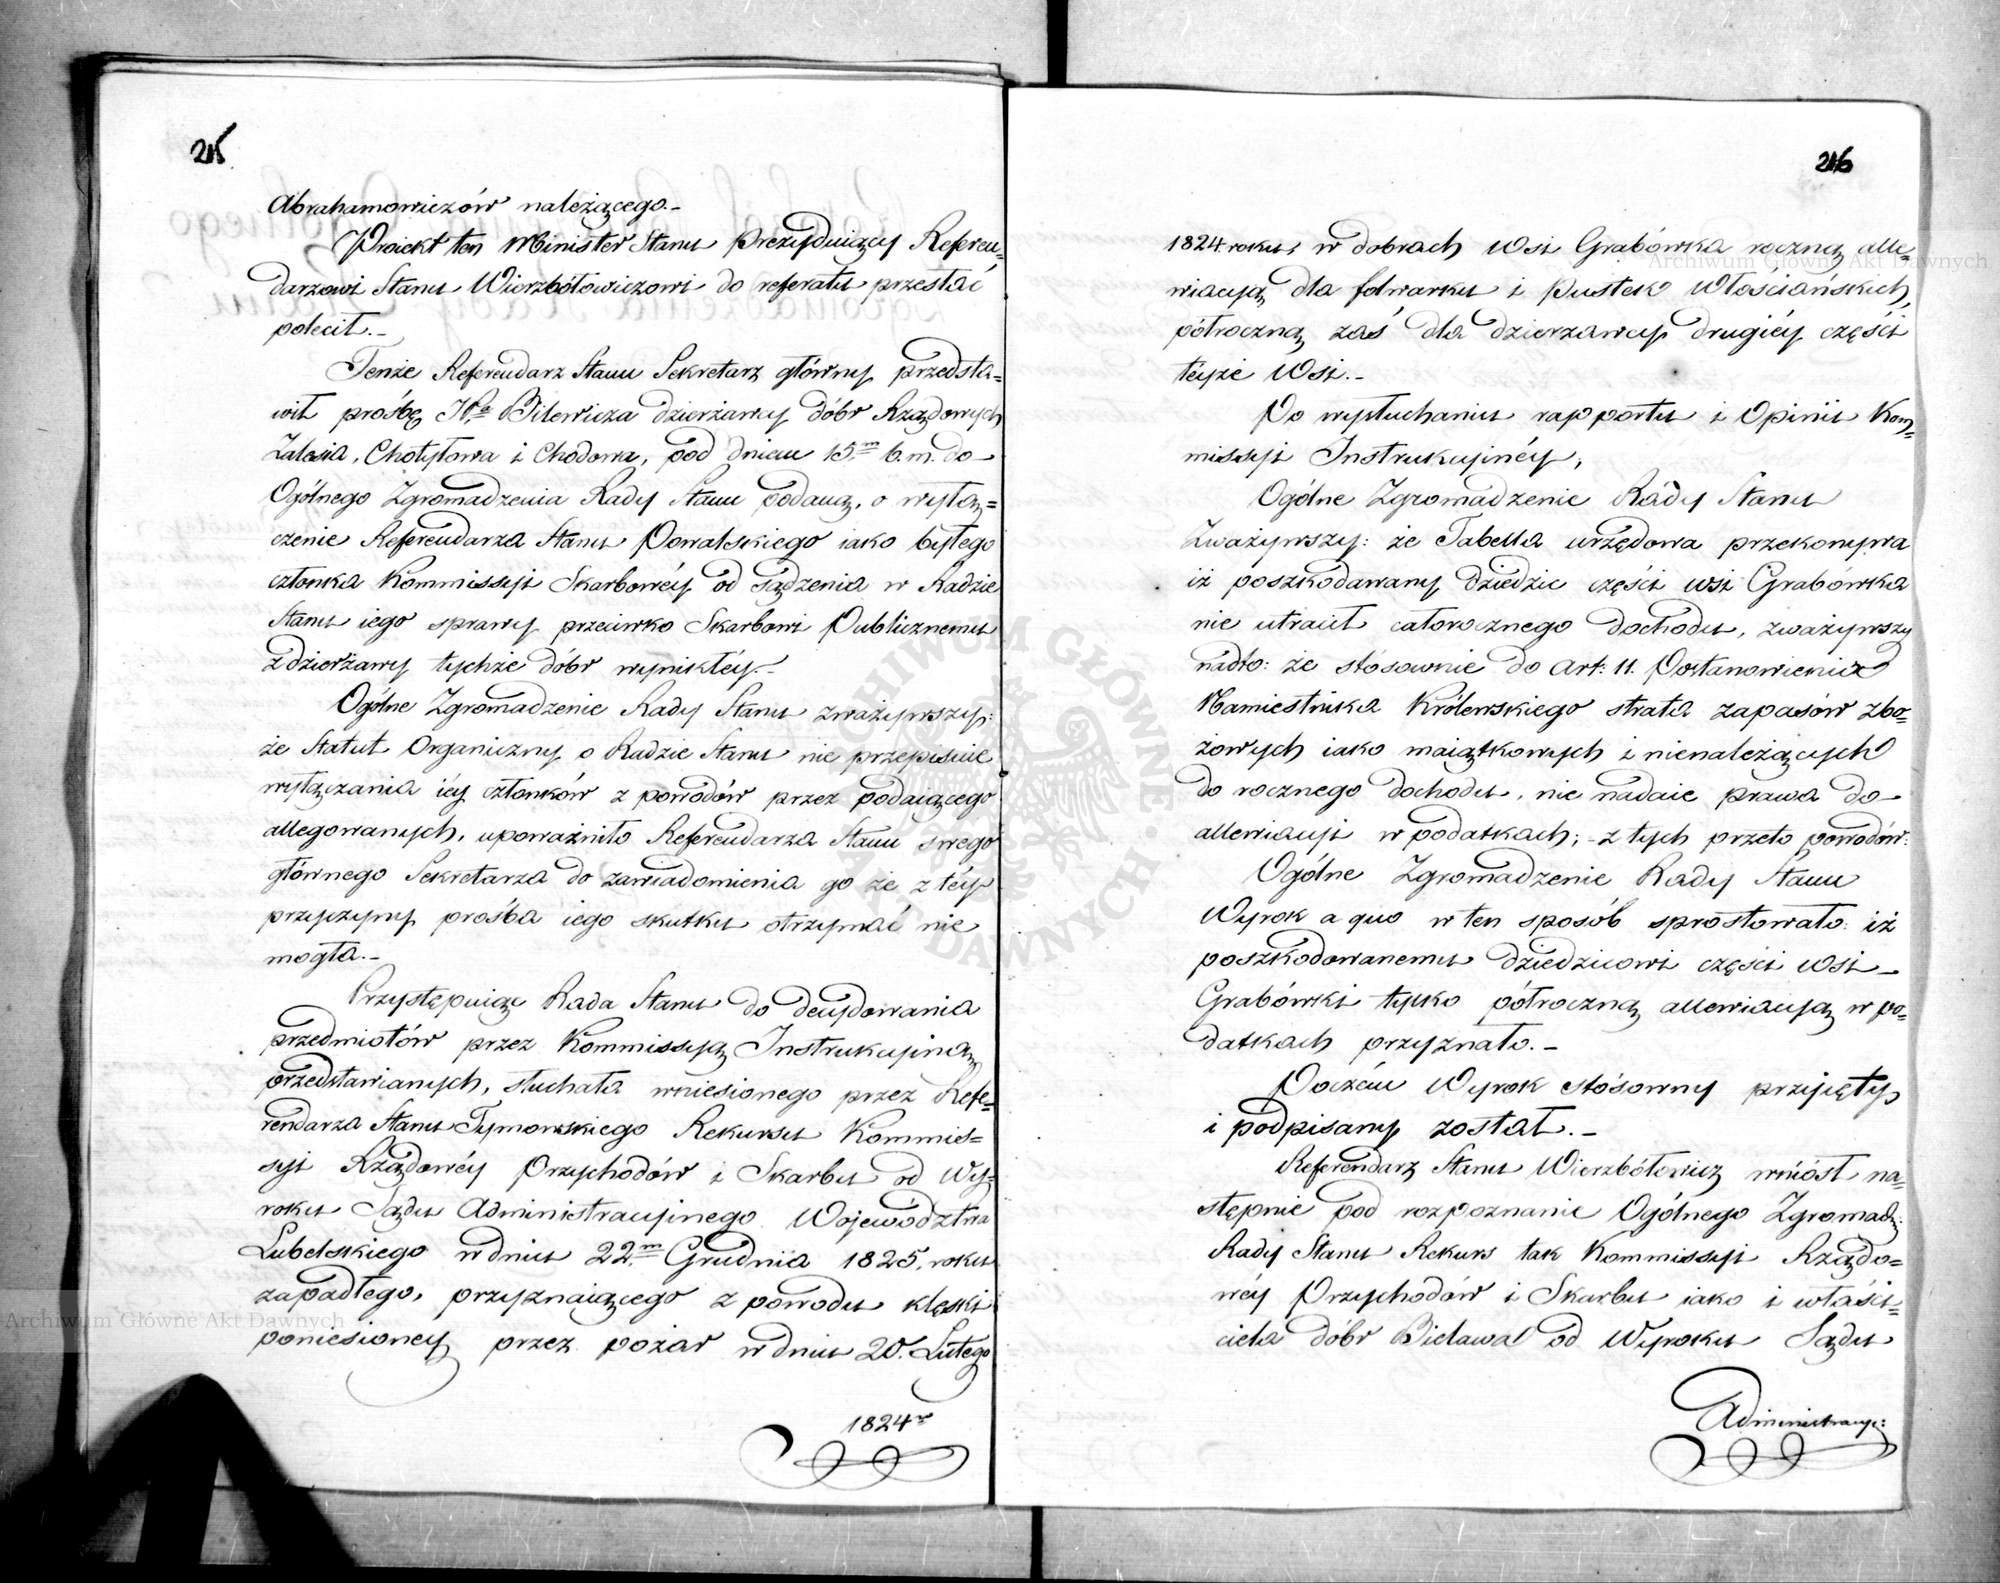 215
Abrahamowiczów należącego.–
Proiekt ten Minister Stanu Prezyduiący Referen=
darzowi Stanu Wierzbołowiczowi do referatu przesłać
polecił.–
Tenże Referendarz Stanu Sekretarz główny przedsta=
wił prośbę JPa Bilewicza dzierżawcy dóbr Rządowych
Zalesia, Chotyłowa i Chodowa, pod dniem 15.m b. m. do–
Ogólnego Zgromadzenia Rady Stanu podaną, o wyłą=
czenie Referendarza Stanu Powalskiego iako byłego
członka Kommissyi Skarbowéy od sądzenia w Radzie
Stanu iego sprawy przeciwko Skarbowi Publicznemu
z dzierżawy tychże dóbr wynikłéy.–
Ogólne Zgromadzenie Rady Stanu zważywszy:
że Statut Organiczny o Radzie Stanu nie przepisuie
wyłączania iéy członków z powodów przez podaiącego
allegowanych, upoważniło Referendarza Stanu swego
głównego Sekretarza do zawiadomienia go że z téy
przyczyny prośba iego skutku otrzymać nie
mogła.–
Przystępuiąc Rada Stanu do decydowania
przedmiotów przez Kommissyą Instrukcyiną
przedstawianych, słuchała wniesionego przez Refe=
rendarza Stanu Tymowskiego Rekursu Kommis=
syi Rządowéy Przychodów i Skarbu od Wy=
roku Sądu Administracyinego Województwa
Lubelskiego w dniu 22.m Grudnia 1825. roku
zapadłego, przyznaiącego z powodu klęski
poniesioney przez pożar w dniu 20. Lutego
1824 r
216
1824 roku, w dobrach Wsi Grabówka roczną alle=
wiacyą dla folwarku i pustek Włościańskich,
półroczną zaś dla dzierzawcy drugiéy części
téyże Wsi.–
Po wysłuchaniu rapportu i Opinii Kom=
missyi Instrukcyinéy,
Ogólne Zgromadzenie Rady Stanu
Zważywszy: że Tabella urzędowa przekonywa
iż poszkodawany dziedzic części wsi Grabówka
nie utracił całorocznego dochodu, zważywszy
nadto: że stósownie do Art: 11. Postanowienia
Namiestnika Królewskiego strata zapasów zbo=
żowych iako maiątkowych i nienależących
do rocznego dochodu, nie nadaie prawa do–
allewiacyi w podatkach; – z tych przeto powodów:
Ogólne Zgromadzenie Rady Stanu
Wyrok a quo w ten sposób sprostowało: iż
poszkodowanemu dziedzicowi części Wsi–
Grabówki tylko półroczną allewiacyą w po=
datkach przyznało.–
Poczém Wyrok stósowny przyięty
i podpisany został.–
Referendarz Stanu Wierzbołowicz wniósł na=
stępnie pod rozpoznanie Ogólnego Zgromadz:
Rady Stanu Rekurs tak Kommissyi Rządo=
wéy Przychodów i Skarbu iako i właści=
ciela dóbr Bielawal od Wyroku Sądu
Administracyi:
Archiwum Główne Akt Dawnych
Archiwum Główne Akt Dawnych
ARCHIWUM GŁÓWNE AKT DAWNYCH